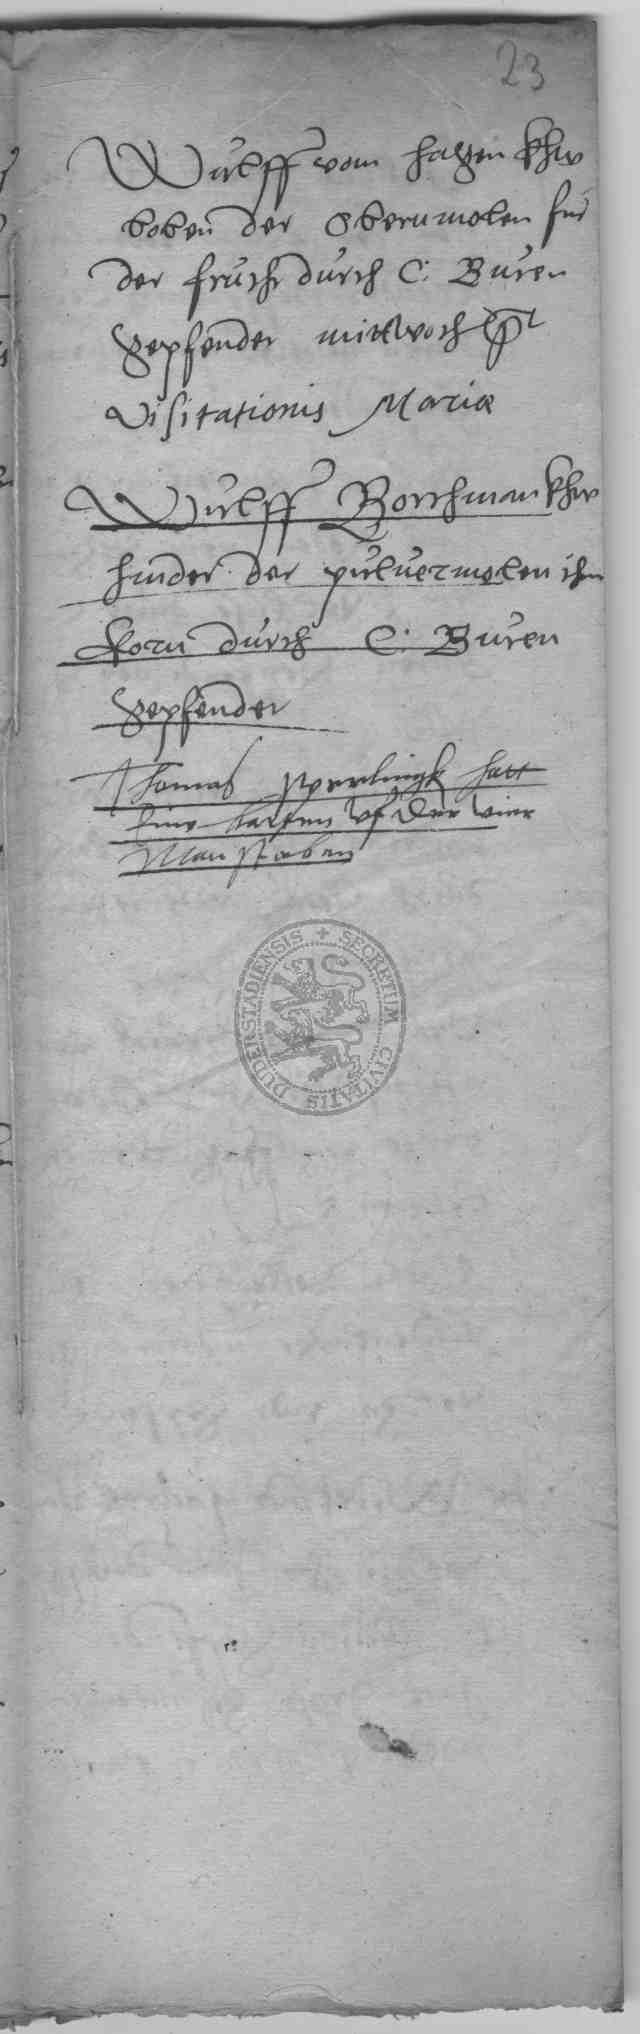 23
Wulff vom Hagen khw
boben der Obernmolen fur
der frucht durch C: Buren
gepfendet mittwoch p
Visitationis Mariæ
Wulff Borchman khw
hinder der pulvermolen ihm
korn durch C: Buren
gepfendet
Thomas hatt
eine uf der vier
SECRETUM CIVITATIS DUDERSTADIENSIS